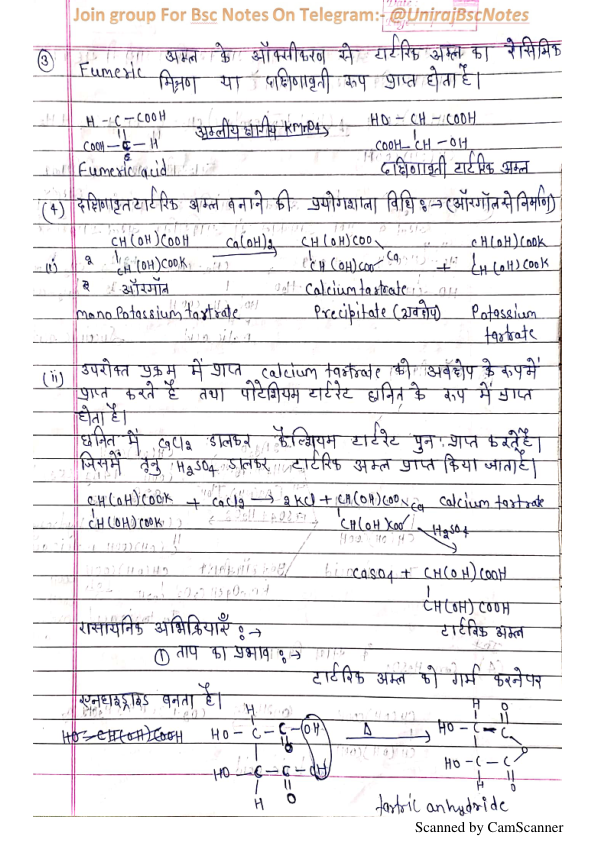 Join group For Bsc Notes On Telegram:- @UnirajBscNotes
③ Fumeric अम्ल के ऑक्सीकरण से टार्टरिक अम्ल का रेसिमिक
मिश्रण या दक्षिणावृती रूप प्राप्त होता है।
H - C - COOH HO - CH - COOH
COOH - C - H अम्लीय क्षारीय KMnO4 COOH - CH - OH
Fumeric acid दक्षिणावृती टार्टरिक अम्ल
(4) दक्षिणावृत टार्टरिक अम्ल बनाने की प्रयोगशाला विधि :→ (ऑरगॉल से निर्माण)
CH(OH)COOH Ca(OH)2 CH(OH)COO CH(OH)COOK
(i) २ CH(OH)COOK CH(OH)COO Ca + CH(OH)COOK
ऑरगॉल Calcium tartrate
mono Potassium tartrate Precipitate (अवक्षेप) Potassium
tartrate
(ii) उपरोक्त प्रक्रम में प्राप्त calcium tartrate को अवक्षेप के रूप में
प्राप्त करते है तथा पोटेशियम टार्टरेट छनित के रूप में प्राप्त
होता है।
छनित में CaCl2 डालकर कैल्शियम टार्टरेट पुनः प्राप्त करते है।
जिसमें तनु H2SO4 डालकर टार्टरिक अम्ल प्राप्त किया जाता है।
CH(OH)COOK + CaCl2 → 2KCl + CH(OH)COO Ca Calcium tartrate
CH(OH)COOK CH(OH)COO H2SO4
CaSO4 + CH(OH)COOH
CH(OH)COOH
रासायनिक अभिक्रियाएँ :→ टार्टरिक अम्ल
① ताप का प्रभाव :→
टार्टरिक अम्ल को गर्म करने पर
एनहाइड्राइड बनता है।
H H O
HO - CH(OH)COOH HO - C - C - OH Δ HO - C - C
O O
HO - C - C - OH HO - C - C
H O H O
tartric anhydride
Scanned by CamScanner